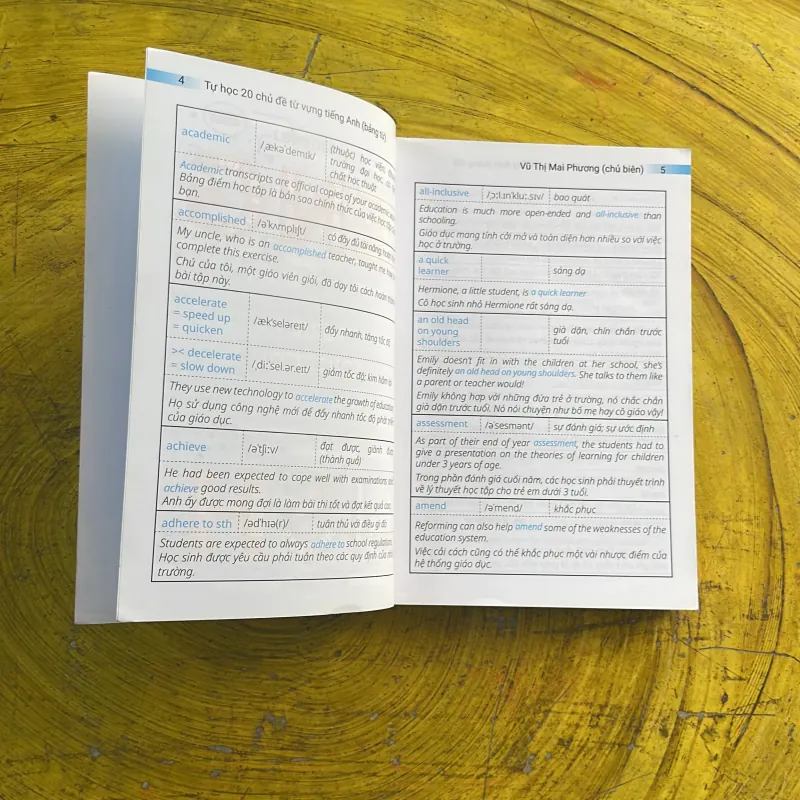 4 Tự học 20 chủ đề từ vựng tiếng Anh (bảng từ)
academic /ˌækəˈdemɪk/ (thuộc) học viện,
trường đại học,
chất học thuật
Academic transcripts are official copies of your academic
Bảng điểm học tập là bản sao chính thức của việc học tập
bạn.
accomplished /əˈkʌmplɪʃt/ có đầy đủ tài năng,
My uncle, who is an accomplished teacher, taught me how
complete this exercise.
Chú của tôi, một giáo viên giỏi, đã dạy tôi cách hoàn
bài tập này.
accelerate
= speed up
= quicken /ækˈseləreɪt/ đẩy nhanh, tăng tốc độ
>< decelerate
= slow down /ˌdiːˈsel.ər.eɪt/ giảm tốc độ; kìm hãm
They use new technology to accelerate the growth of education
Họ sử dụng công nghệ mới để đẩy nhanh tốc độ phát
của giáo dục.
achieve /əˈtʃiːv/ đạt được, giành được
(thành quả)
He had been expected to cope well with examinations and
achieve good results.
Anh ấy được mong đợi là làm bài thi tốt và đạt kết quả cao.
adhere to sth /ədˈhɪə(r)/ tuân thủ với điều gì đó
Students are expected to always adhere to school regulations.
Học sinh được yêu cầu phải tuân theo các quy định của nhà
trường.
Vũ Thị Mai Phương (chủ biên) 5
all-inclusive /ˌɔːl.ɪnˈkluː.sɪv/ bao quát
Education is much more open-ended and all-inclusive than
schooling.
Giáo dục mang tính cởi mở và toàn diện hơn nhiều so với việc
học ở trường.
a quick
learner sáng dạ
Hermione, a little student, is a quick learner
Cô học sinh nhỏ Hermione rất sáng dạ.
an old head
on young
shoulders già dặn, chín chắn trước
tuổi
Emily doesn't fit in with the children at her school, she's
definitely an old head on young shoulders. She talks to them like
a parent or teacher would!
Emily không hợp với những đứa trẻ ở trường, nó chắc chắn
già dặn trước tuổi. Nó nói chuyện như bố mẹ hay cô giáo vậy!
assessment /əˈsesmənt/ sự đánh giá; sự ước định
As part of their end of year assessment, the students had to
give a presentation on the theories of learning for children
under 3 years of age.
Trong phần đánh giá cuối năm, các học sinh phải thuyết trình
về lý thuyết học tập cho trẻ em dưới 3 tuổi.
amend /əˈmend/ khắc phục
Reforming can also help amend some of the weaknesses of the
education system.
Việc cải cách cũng có thể khắc phục một vài nhược điểm của
hệ thống giáo dục.